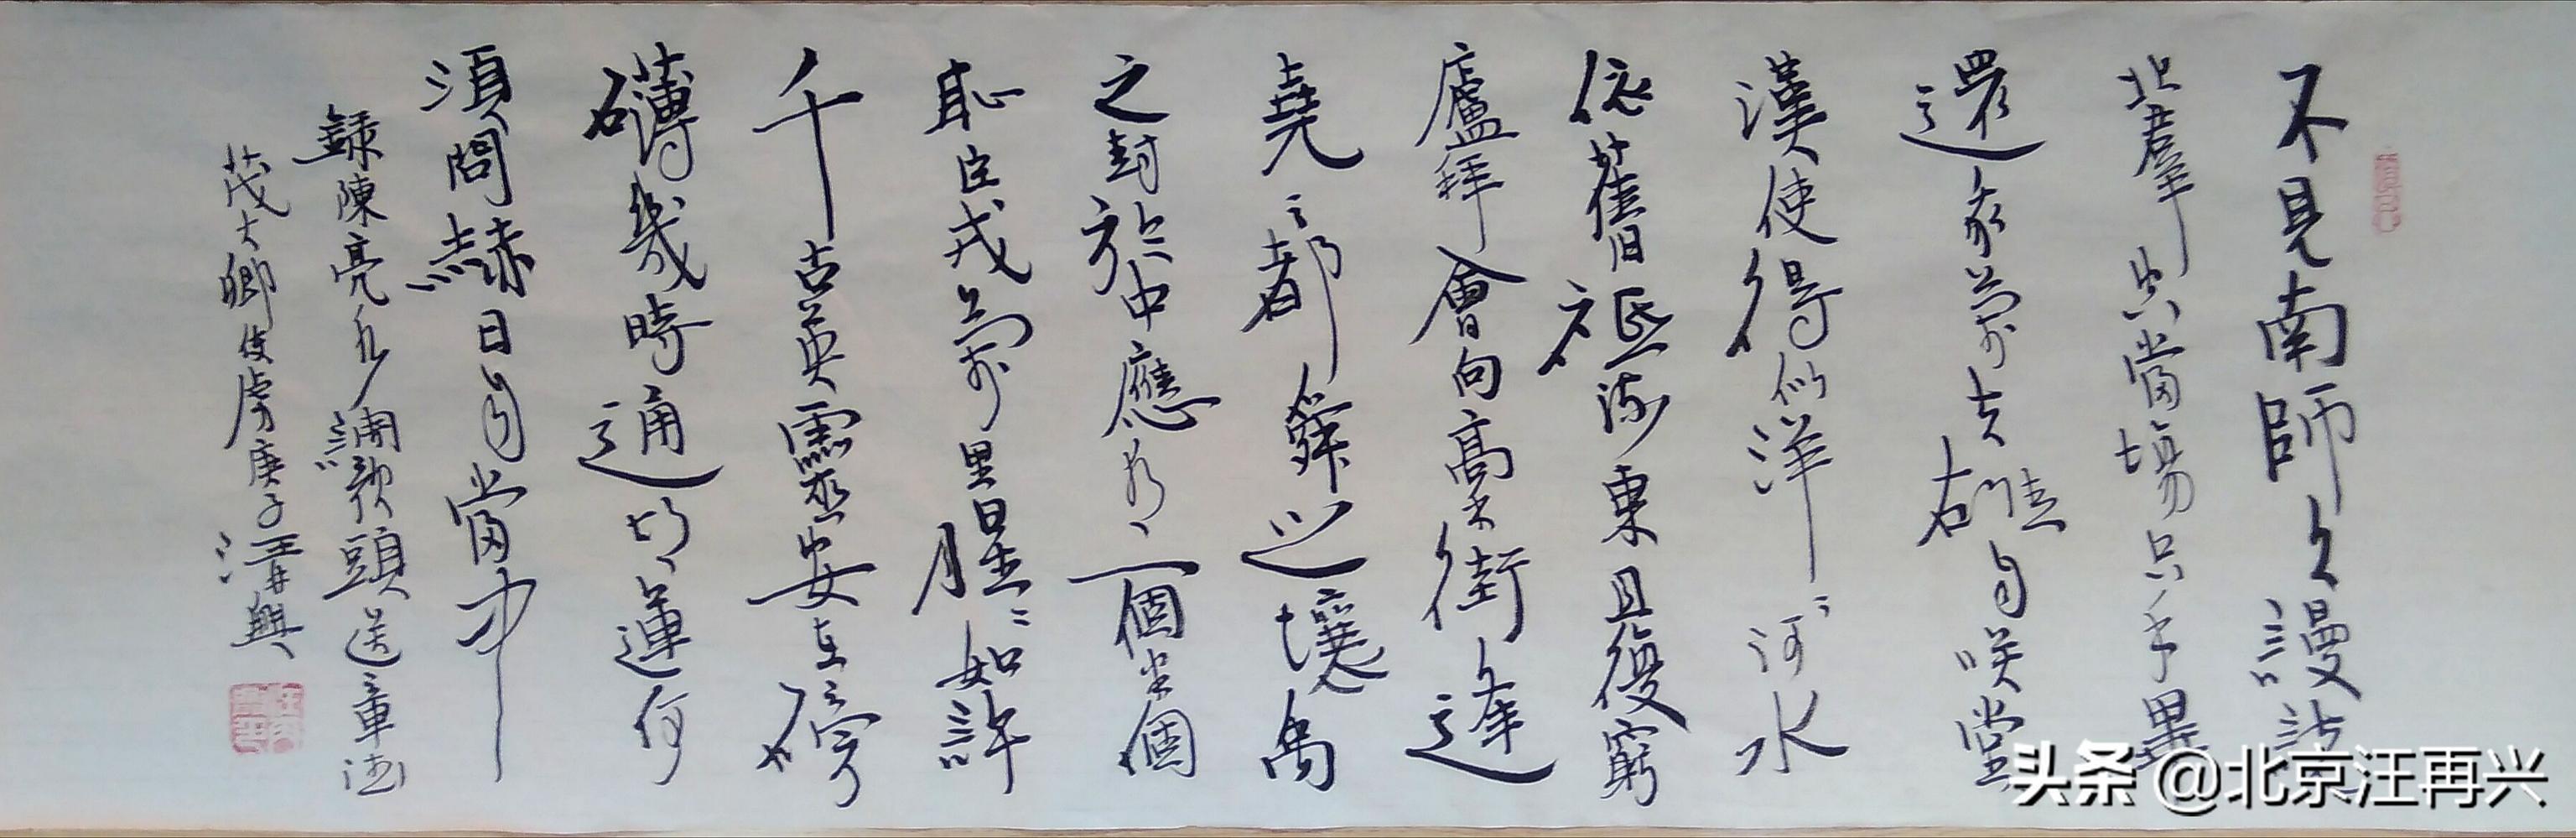 不見南師久謾說
北羣空當場隻手畢
還我萬夫雄自笑堂
漢使得似洋ミ河水
依舊祇流東且復穹
廬拜會向藁街逢
堯ミ都舜之壤禹
之封於中應有一個半個
恥臣戎萬里腥ミ如許
千古英靈安在磅
礴幾時通胡運何
須問赫日自當中
錄陳亮水調歌頭送章德
茂大卿使虜庚子溝興
头条 @北京汪再兴